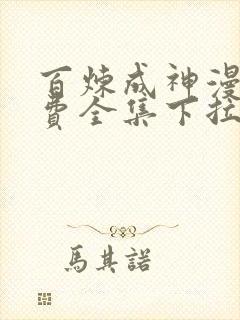 百炼成神漫
费全集下拉
馬其諾